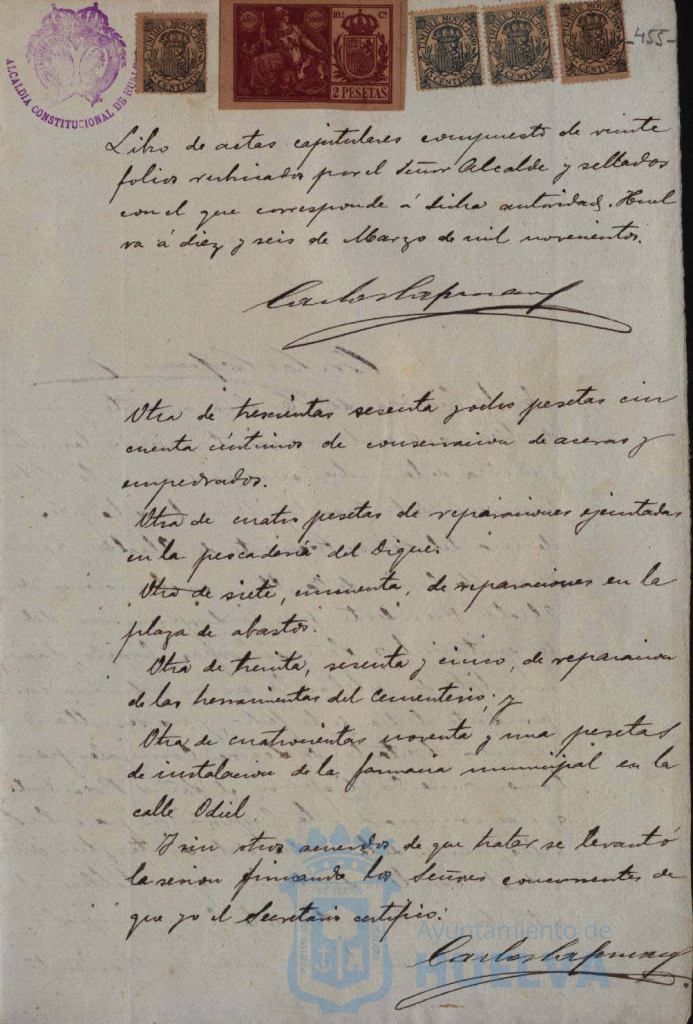 ALCALDIA CONSTITUCIONAL DE HUEL
TIMBRE MOVIL 1900
CENTIMOS
AÑO 1900 10ª Cª
2 PESETAS
TIMBRE MOVIL 1900
CENTIMOS
TIMBRE MOVIL 1900
CENTIMOS
TIMBRE MOVIL 1900
CENTIMOS
-455-
Libro de actas capitulares compuesto de veinte
folios rubricados por el Señor Alcalde y sellados
con el que corresponde á dicha autoridad. Huel
va á diez y seis de Marzo de mil novecientos.
Carlos
Otra de trescientas sesenta y dos pesetas cin
cuenta céntimos de conservacion de aceras y
empedrados.
Otra de cuatro pesetas de reparaciones ejecutadas
en la pescaderia del Dique.
Otra de siete, cincuenta, de reparaciones en la
plaza de abastos.
Otra de treinta, sesenta y cinco, de reparacion
de las herramientas del Cementerio; y
Otra de cuatrocientas noventa y una pesetas
de instalacion de la farmacia municipal en la
calle Odiel.
Y sin otros acuerdos de que tratar se levantó
la sesion firmando los Señores concurrentes de
que yo el Secretario certifico.
Carlos
Ayuntamiento de
HUELVA